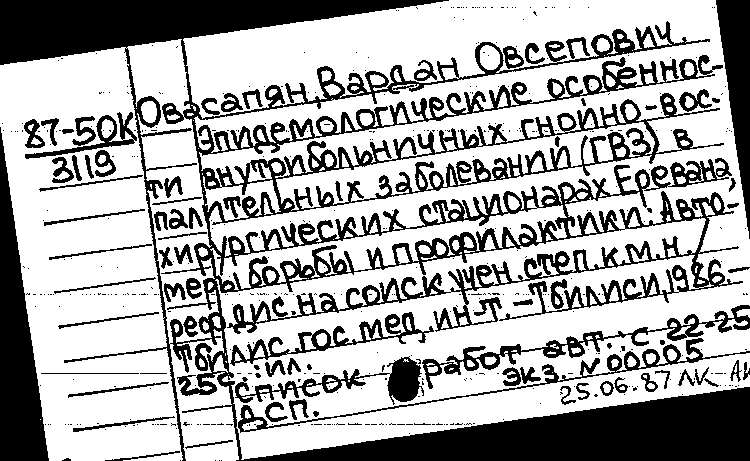 Овасапян, Вардан Овсепович.
87-50К
3119
Эпидемологические особеннос-
ти внутрибольничных гнойно-вос-
палительных заболеваний (ГВЗ) в
хирургических стационарах Еревана,
меры борьбы и профилактики: Авто-
реф. дис. на соиск. учен. степ. к.м.н. /
Тбилис. гос. мед. ин-т. – Тбилиси, 1986. –
25с.: ил.
Список работ авт.: с. 22-25
ДСП. экз. N 00005
25.06.87 ЛК